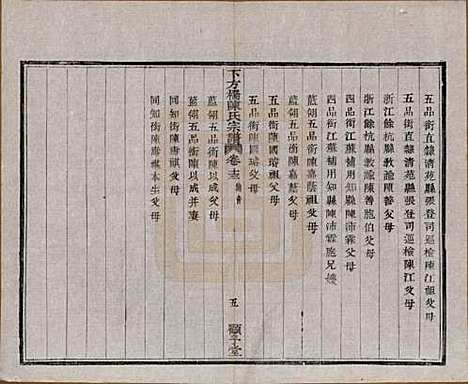 五品銜直隸清苑縣張登司巡檢陳江祖父母
五品銜直隸清苑縣張登司巡檢陳江父母
浙江餘杭縣教諭陳善父母
浙江餘杭縣教諭陳善胞伯父母
四品銜江蘇補用知縣陳沛霖父母
四品銜江蘇補用知縣陳沛霖胞兄嫂
藍翎五品銜陳嘉蔭祖父母
藍翎五品銜陳嘉蔭父母
五品銜陳國瑢祖父母
五品銜陳國瑢父母
下方橋陳氏宗譜 卷十五
五
顯承堂
藍翎五品銜陳以成父母
藍翎五品銜陳以成并妻
同知銜陳賡祺父母
同知銜陳賡祺本生父母